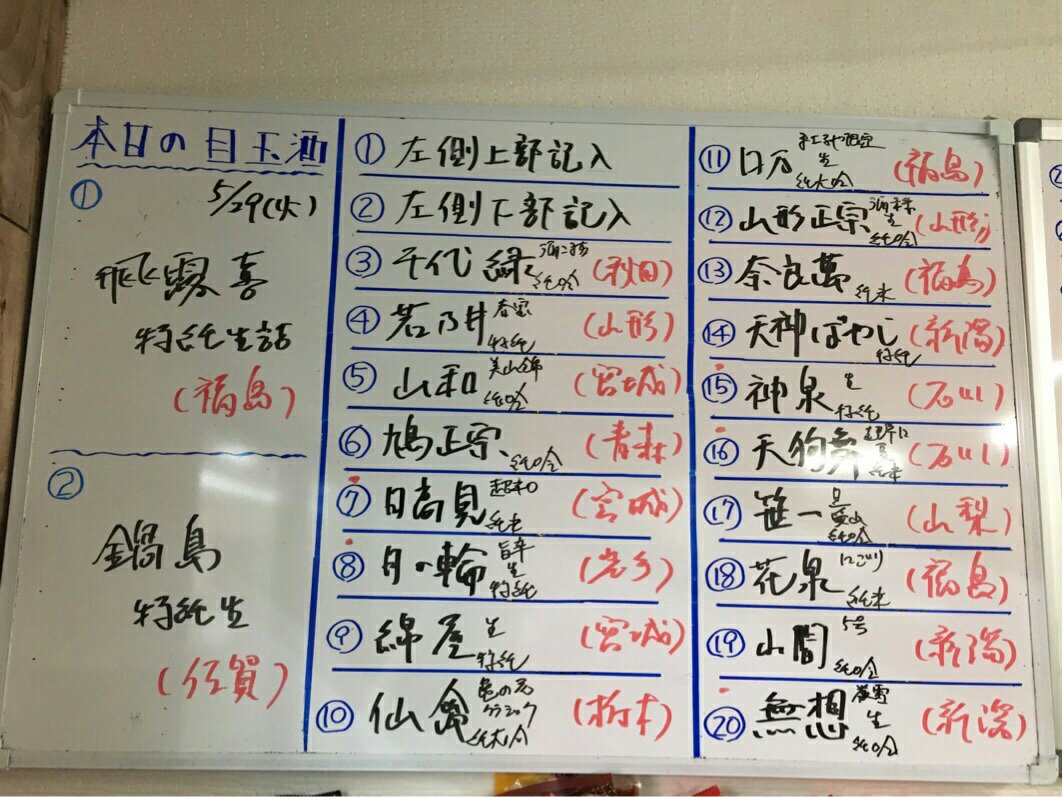 本日の目玉酒
① 5/29(火)
飛露喜
特純生詰
(福島)
②
鍋島
特純生
(佐賀)
① 左側上部記入
② 左側下部記入
③ 千代緑 純吟 (秋田)
④ 若乃井 春雲 特純 (山形)
⑤ 山和 美山錦 純吟 (宮城)
⑥ 鳩正宗 純吟 (青森)
⑦ 日高見 超辛口 純米 (宮城)
⑧ 月の輪 旨辛 生 特純 (岩手)
⑨ 綿屋 生 特純 (宮城)
⑩ 仙禽 亀の尾 クラシック 純大吟 (栃木)
⑪ ロ万 生 純大吟 (福島)
⑫ 山形正宗 酒未来 生 純吟 (山形)
⑬ 奈良萬 純米 (福島)
⑭ 天神ばやし 特純 (新潟)
⑮ 神泉 生 特純 (石川)
⑯ 天狗舞 超辛口 夏 純米 (石川)
⑰ 笹一 純吟 (山梨)
⑱ 花泉 にごり 純米 (福島)
⑲ 山間 5号 純吟 (新潟)
⑳ 無想 生 純吟 (新潟)